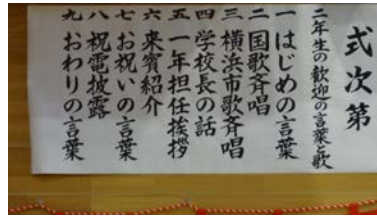 式次第
二年生の歓迎の言葉と歌
一 はじめの言葉
二 国歌斉唱
三 横浜市歌斉唱
四 学校長の話
五 一年担任挨拶
六 来賓紹介
七 お祝いの言葉
八 祝電披露
九 おわりの言葉